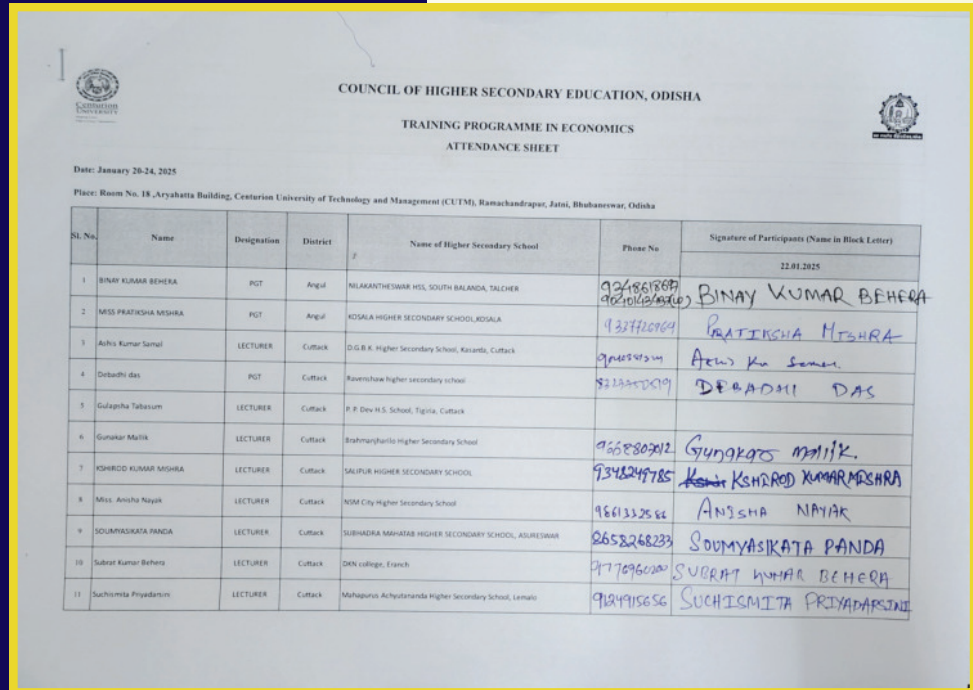 Centurion
UNIVERSITY
COUNCIL OF HIGHER SECONDARY EDUCATION, ODISHA
TRAINING PROGRAMME IN ECONOMICS
ATTENDANCE SHEET
Date: January 20-24, 2025
Place: Room No. 18 ,Aryabatta Building, Centurion University of Technology and Management (CUTM), Ramachandrapur, Jatni, Bhubaneswar, Odisha
Sl. No. Name Designation District Name of Higher Secondary School Phone No Signature of Participants (Name in Block Letter)
22.01.2025
1 BINAY KUMAR BEHERA PGT Angul NILAKANTHESWAR HSS, SOUTH BALANDA, TALCHER BINAY KUMAR BEHERA
2 MISS PRATIKSHA MISHRA PGT Angul KOSALA HIGHER SECONDARY SCHOOL,KOSALA PRATIKSHA MISHRA
3 Ashis Kumar Samal LECTURER Cuttack D.G.B.K. Higher Secondary School, Kasarda, Cuttack
4 Debadhi das PGT Cuttack Ravenshaw higher secondary school DEBADHI DAS
5 Gulapsha Tabasum LECTURER Cuttack P. P. Dev H.S. School, Tigiria, Cuttack
6 Gunakar Mallik LECTURER Cuttack Brahmanjharilo Higher Secondary School 9668803012 Gunakar Mallik.
7 KSHIROD KUMAR MISHRA LECTURER Cuttack SALIPUR HIGHER SECONDARY SCHOOL 9348249785 KSHIROD KUMAR MISHRA
8 Miss. Anisha Nayak LECTURER Cuttack NSM City Higher Secondary School 9861332586 ANISHA NAYAK
9 SOUMYASIKATA PANDA LECTURER Cuttack SUBHADRA MAHATAB HIGHER SECONDARY SCHOOL, ASURESWAR 8658268233 SOUMYASIKATA PANDA
10 Subrat Kumar Behera LECTURER Cuttack DKN college, Eranch SUBRAT KUMAR BEHERA
11 Suchismita Priyadarsini LECTURER Cuttack Mahapurus Achyutananda Higher Secondary School, Lemalo 9124915656 SUCHISMITA PRIYADARSINI